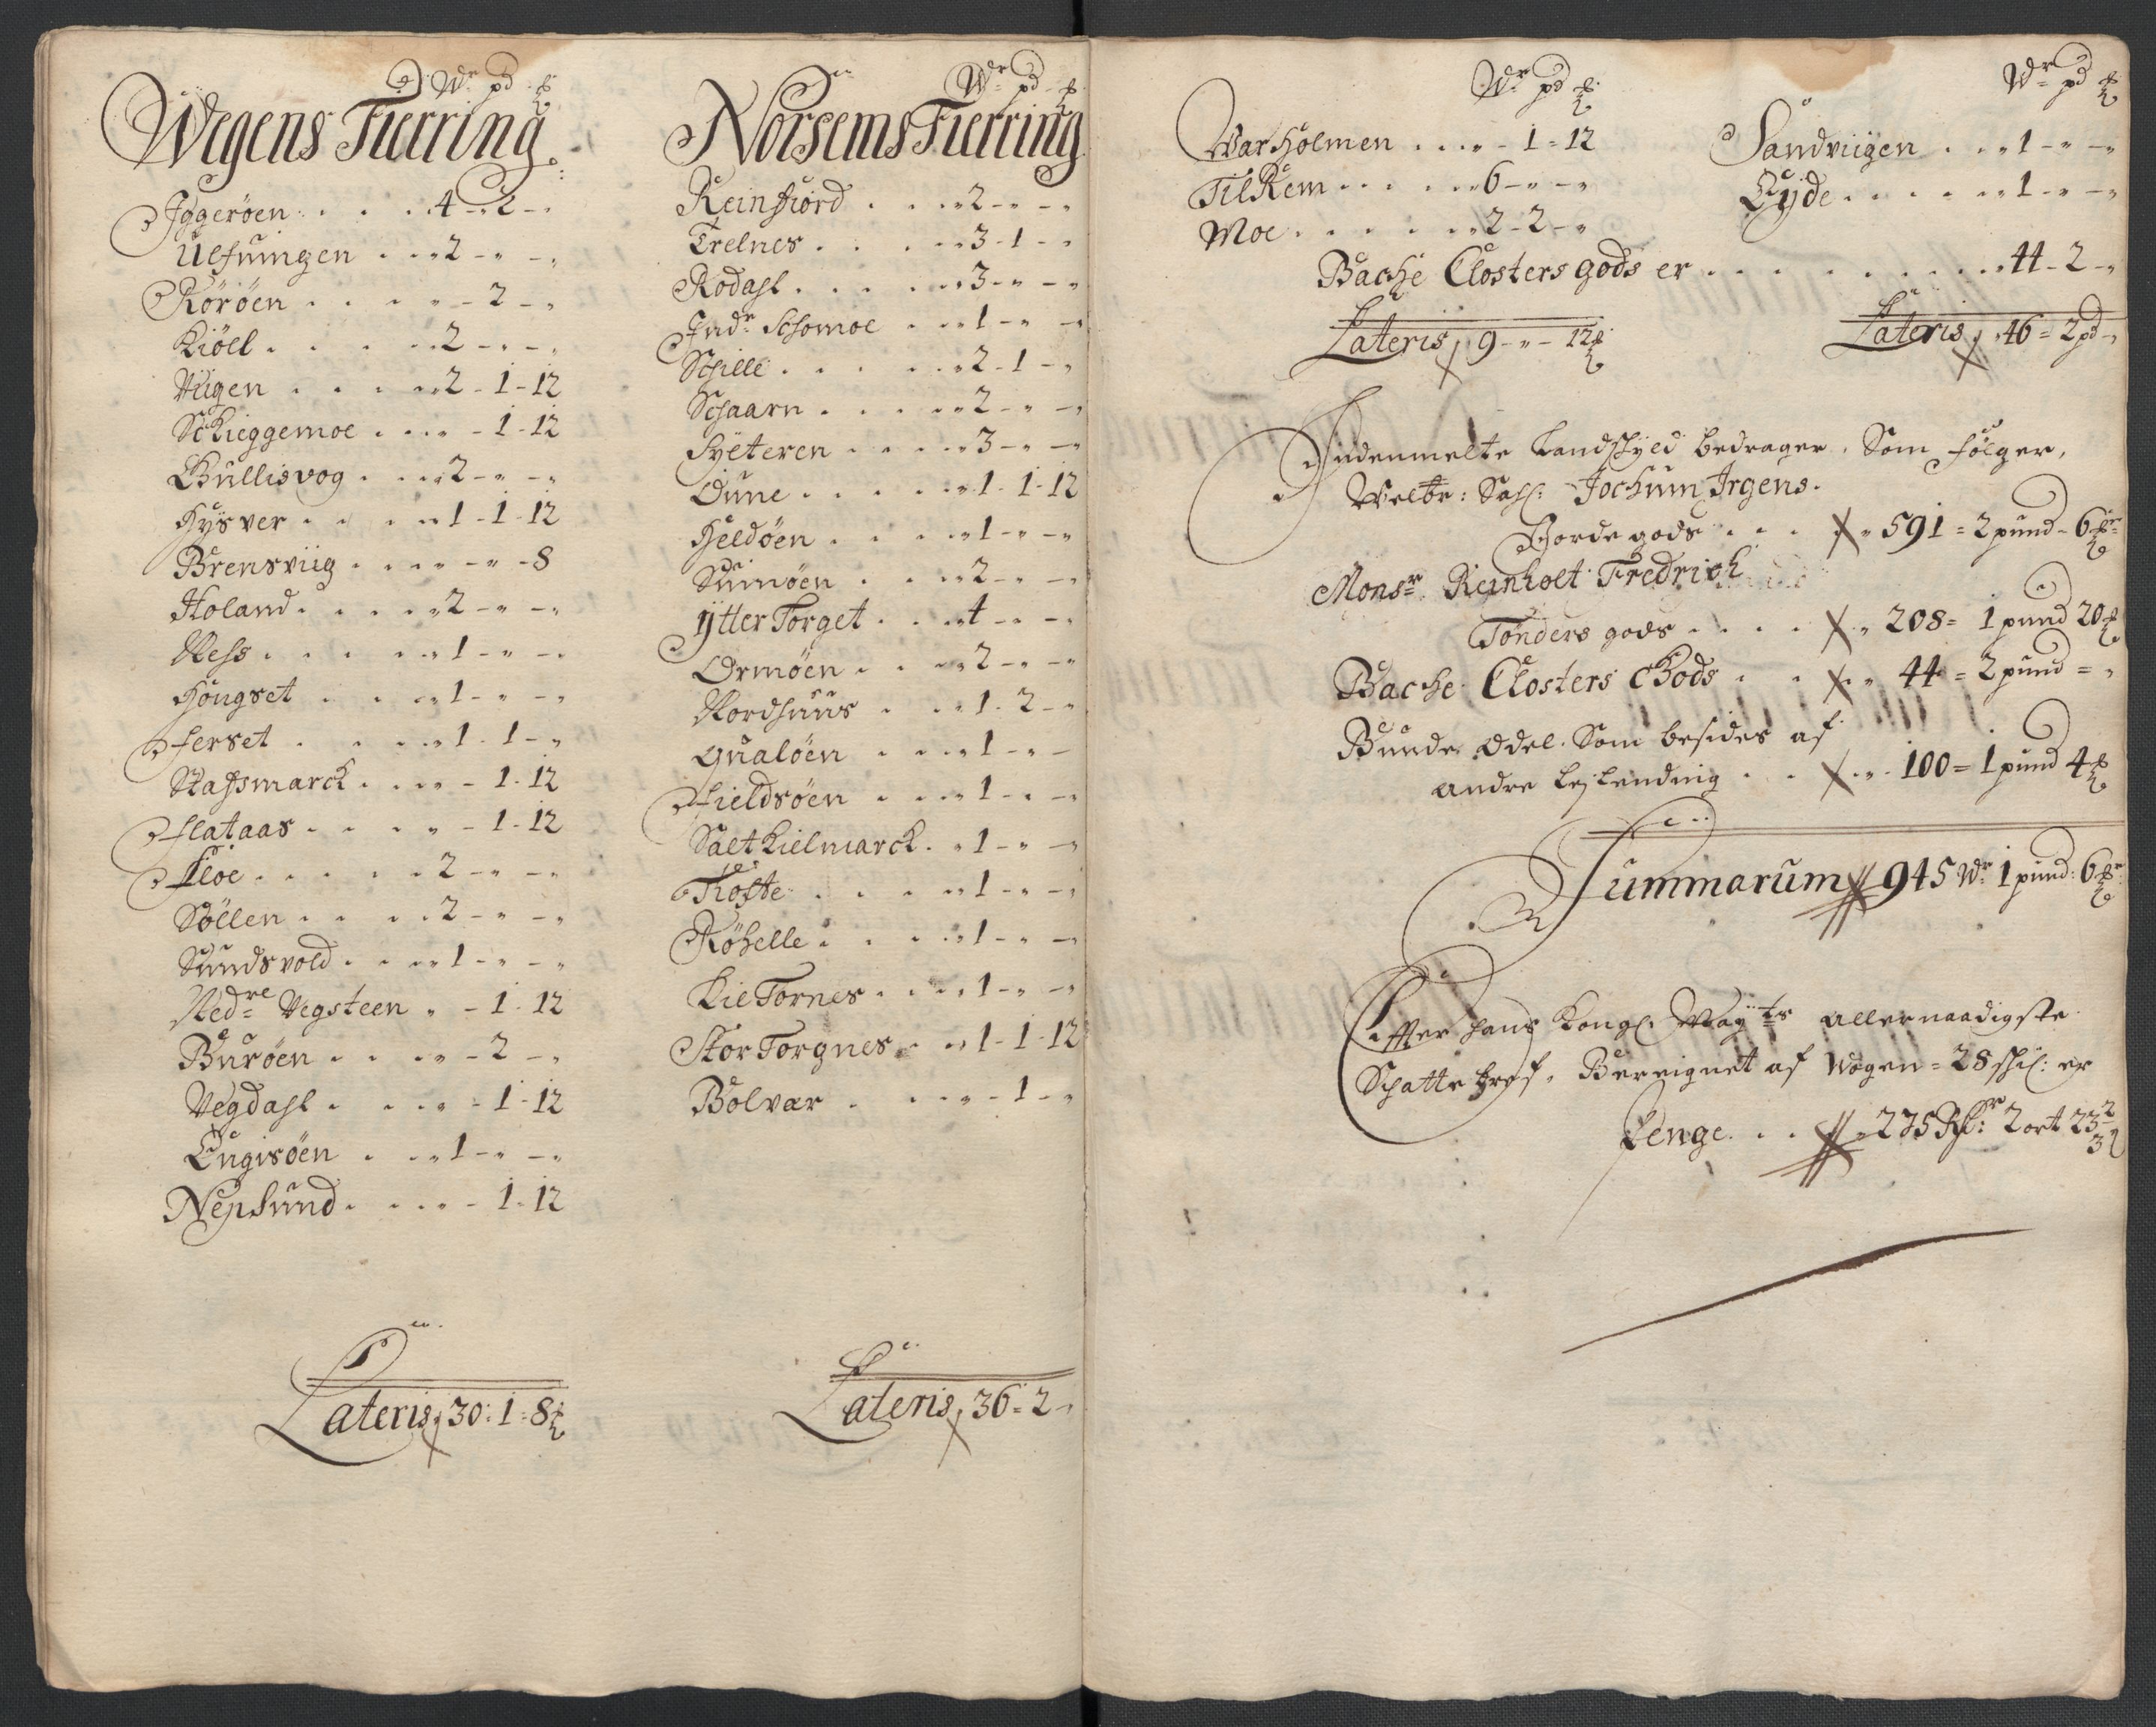 Wr pd ℔
Wegens Fierring
Jggeröen . . . . 4 - 2 -
Ulfuingen . . . 2 - " - "
Röröen . . . . " - 2 - "
Kiöll . . . . . 2 - " - "
Veigen . . . . 2 - 1 - 12
Schieggemoe . . . " - 1 - 12
Gullisvog . . . . 2 - " - "
Hysver . . . . 1 - 1 - 12
Brensviig . . . . " - " - 8
Holand . . . . . 2 - " - "
Ness . . . . . 1 - " - "
Höngset . . . . 1 - " - "
Ferset . . . . 1 - 1 - "
Stassmarck . . . . " - 1 - 12
Flataas . . . . " - 1 - 12
Floe . . . . . 2 - " - "
Söllen . . . . 2 - " - "
Sundsvold . . . . 1 - " - "
Nedre Vegsteen " - 1 - 12
Buröen . . . . " - 2 - "
Vegdahl . . . . " - 1 - 12
Engisöen . . . 1 - " - "
Nepsund . . . . " - 1 - 12
Lateris 30 : 1 = 8 ℔
Wr pd ℔
Norsems Fierring
Reinfiord . . . . 2 - " - "
Trelnes . . . . 3 - 1 - "
Rodahl . . . . . 3 - " - "
Indr Schomoe . . . 1 - " - "
Schille . . . . . 2 - 1 - "
Schaarn . . . . . 2 - " - "
Syeteren . . . . 3 - " - "
Dune . . . . . 1 - 1 - 12
Heldöen . . . . 1 - " - "
Sumöen . . . . 2 - " - "
Ytter Torget . . . 4 - " - "
Ormöen . . . . 2 - " - "
Nordhuus . . . 1 - 2 - "
Qualöen . . . . 1 - " - "
Fieldsöen . . . . 1 - " - "
Saltkielmarck . . 1 - " - "
Tröfte . . . . 1 - " - "
Röhelle . . . . 1 - " - "
Kie Tornes . . . . 1 - " - "
Stor Torgnes . . 1 - 1 - 12
Bolvær . . . . " - 1 - "
Lateris 36 = 2 - "
Wr pd ℔
Varholmen . . . . " - 1 = 12
Tilrem . . . . . 6 - " - "
Moe . . . . . . 2 - 2 - "
Wr pd ℔
Sandviigen . . . 1 - " - "
Eyde . . . . . . 1 - " - "
Bache Closters gods er . . . . . . . . . 44 - 2 - "
Lateris 9 - " - 12 ℔
Lateris 46 = 2 pd - "
Indenmelte Landschyld bedrager, Som følger,
Welbr: Sahl: Jochum Irgens.
Jorde gods . . . 591 = 2 pund - 6 ℔r
Monsr. Reinholt Fredrich
Tönders gods . . . . 208 = 1 pund 20 ℔
Bache Closters Gods . . . 44 = 2 pund = "
Bunde Odel. Som besides af
andre Leylending . . . 100 = 1 pund 4 ℔
Summarum 945 Wr 1 pund: 6 ℔r
Effter hans Kongl. Mayts allernaadigste
Schatte bref, Bereignet af Wogen = 28 shl: er
Penge . . . 275 Rdr: 2 ort 23 2/3 ß